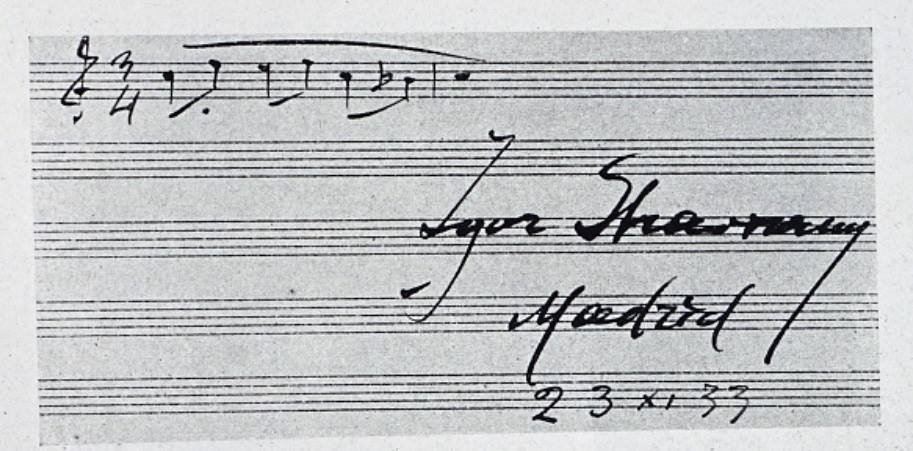 3
4
Igor Strawinsky
Madrid
23 XI 33